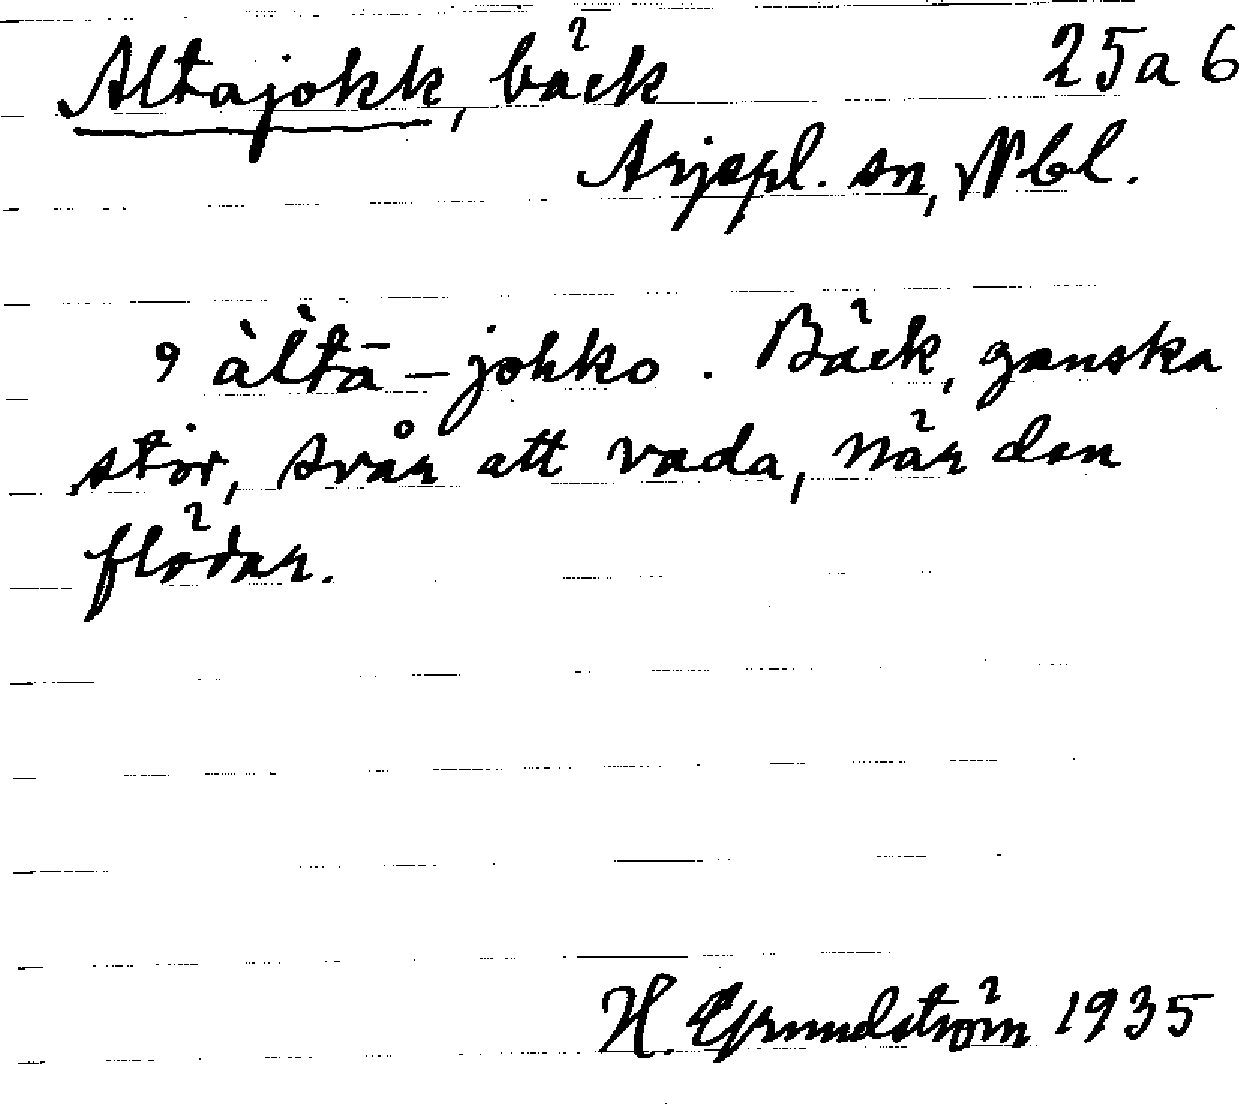 Altajokk, bäck 25a6
Arjepl. sn, Nbl.
9 àl̀tā-johko. Bäck, ganska
stor, svår att vada, när den
flödar.
H. Grundström 1935